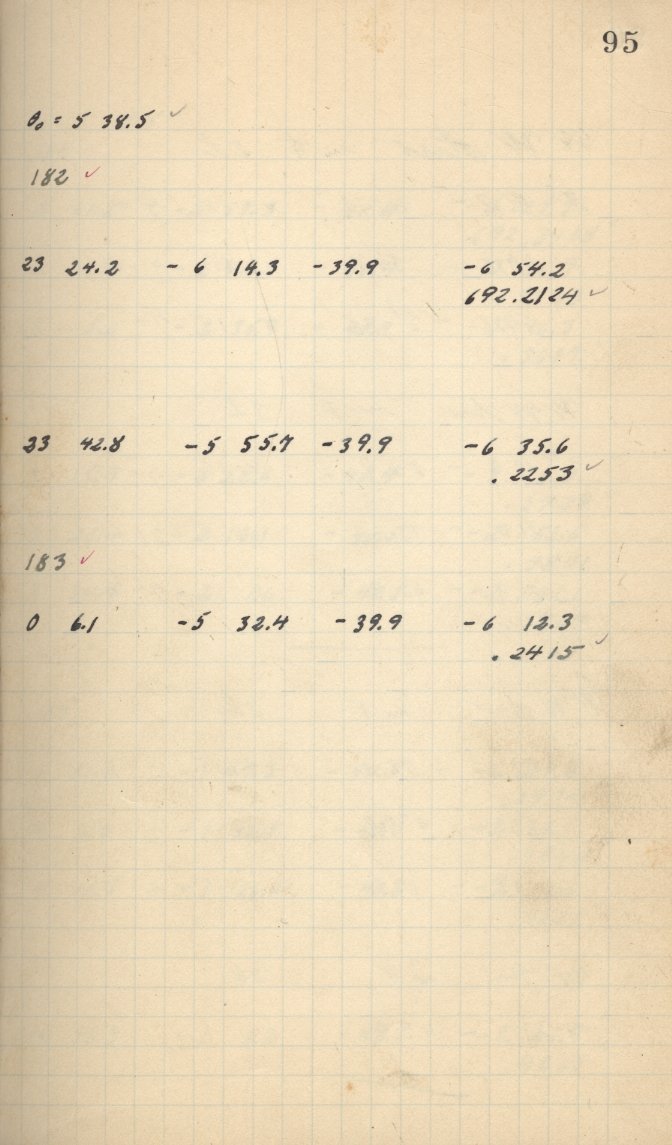 95
θ₀ = 5 38.5 ✓
182 ✓
23 24.2 - 6 14.3 - 39.9 - 6 54.2
692.2124 ✓
23 42.8 - 5 55.7 - 39.9 - 6 35.6
. 2253 ✓
183 ✓
0 6.1 - 5 32.4 - 39.9 - 6 12.3
. 2415 ✓